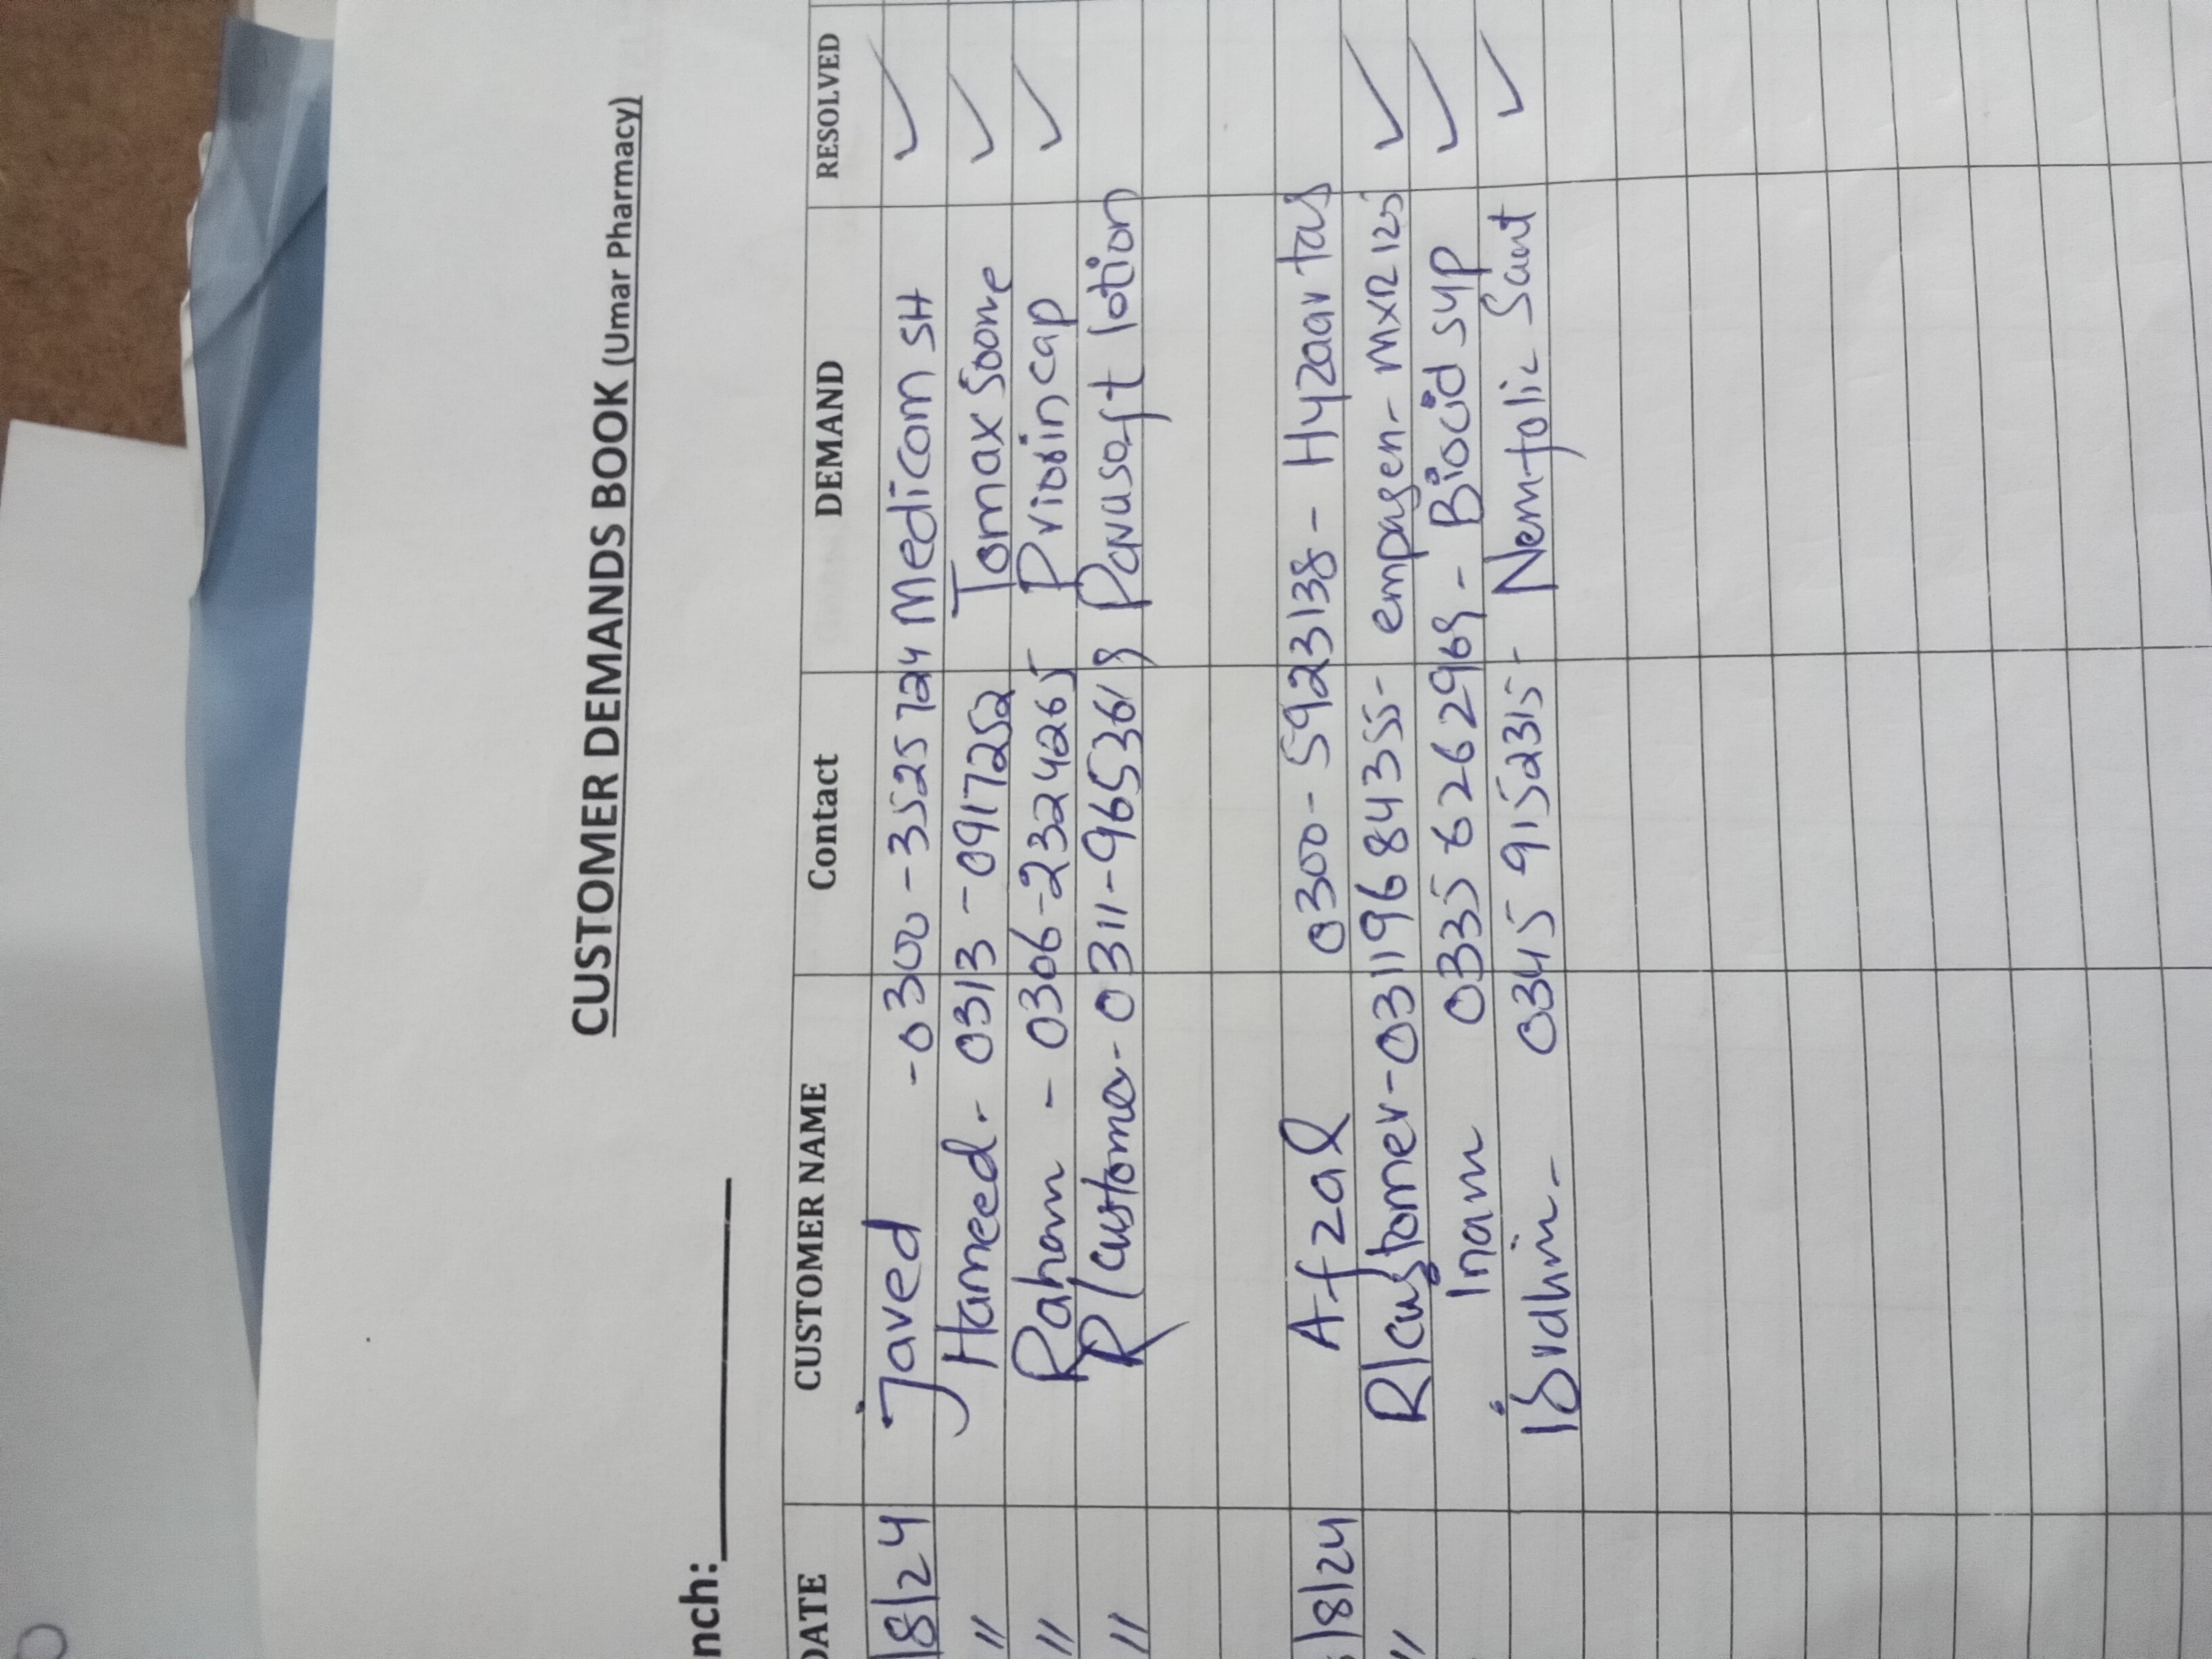 CUSTOMER DEMANDS BOOK (Umar Pharmacy)
nch:
DATE CUSTOMER NAME Contact DEMAND RESOLVED
8/24 Javed - 0300-3525724 Medicam SH ✓
" Hameed - 0313-0917252 Tomax 500mg ✓
" Raham - 0306-2324265 Priosin cap ✓
" R/customer - 0311-9653618 Parusoft lotion
8/24 Afzal 0300-5923138 - Hyzaar tab
" R/customer - 03119684355 - empagen-mXR 125 ✓
Inam 0335 6262969 - Biocid syp ✓
ibrahim - 0345 9152315 - Nemfolic ✓